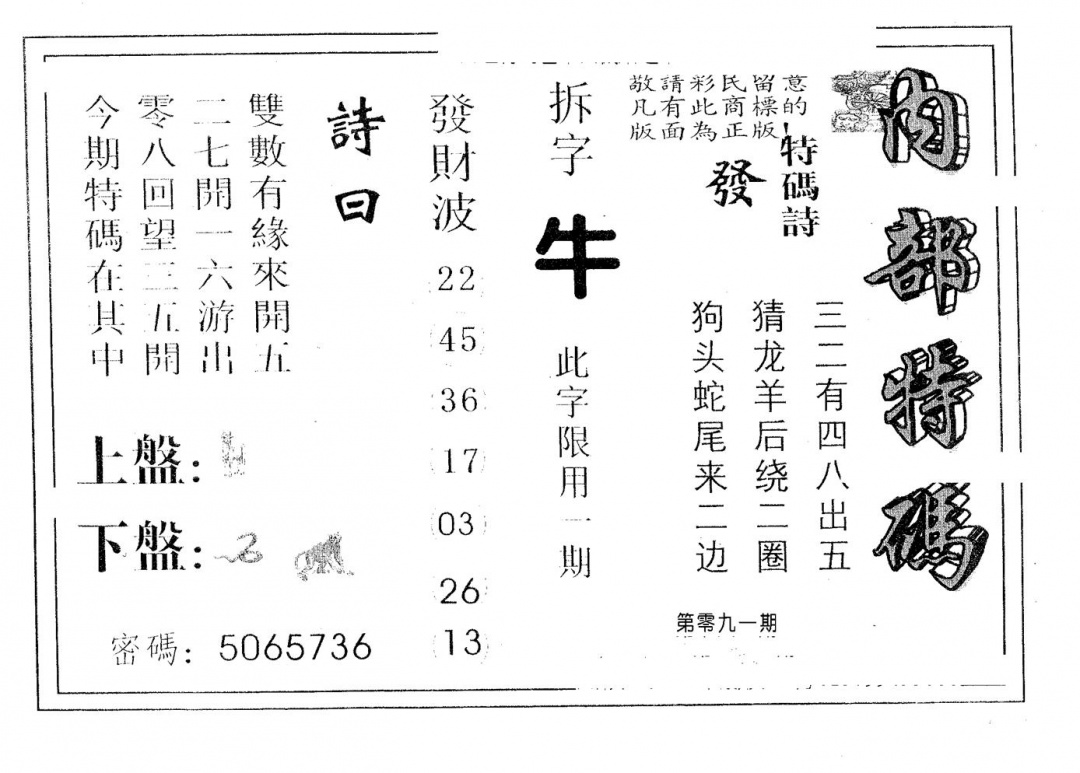 内部特碼
敬請彩民留意
凡有此商標的
版面為正版
特碼詩
發
三二有四八出五
猜龙羊后绕二圈
狗头蛇尾来二边
第零九一期
拆字
牛
此字限用一期
發財波
22
45
36
17
03
26
13
詩曰
雙數有緣來開五
二七開一六游出
零八回望三五開
今期特碼在其中
上盤：
下盤：
密碼：5065736